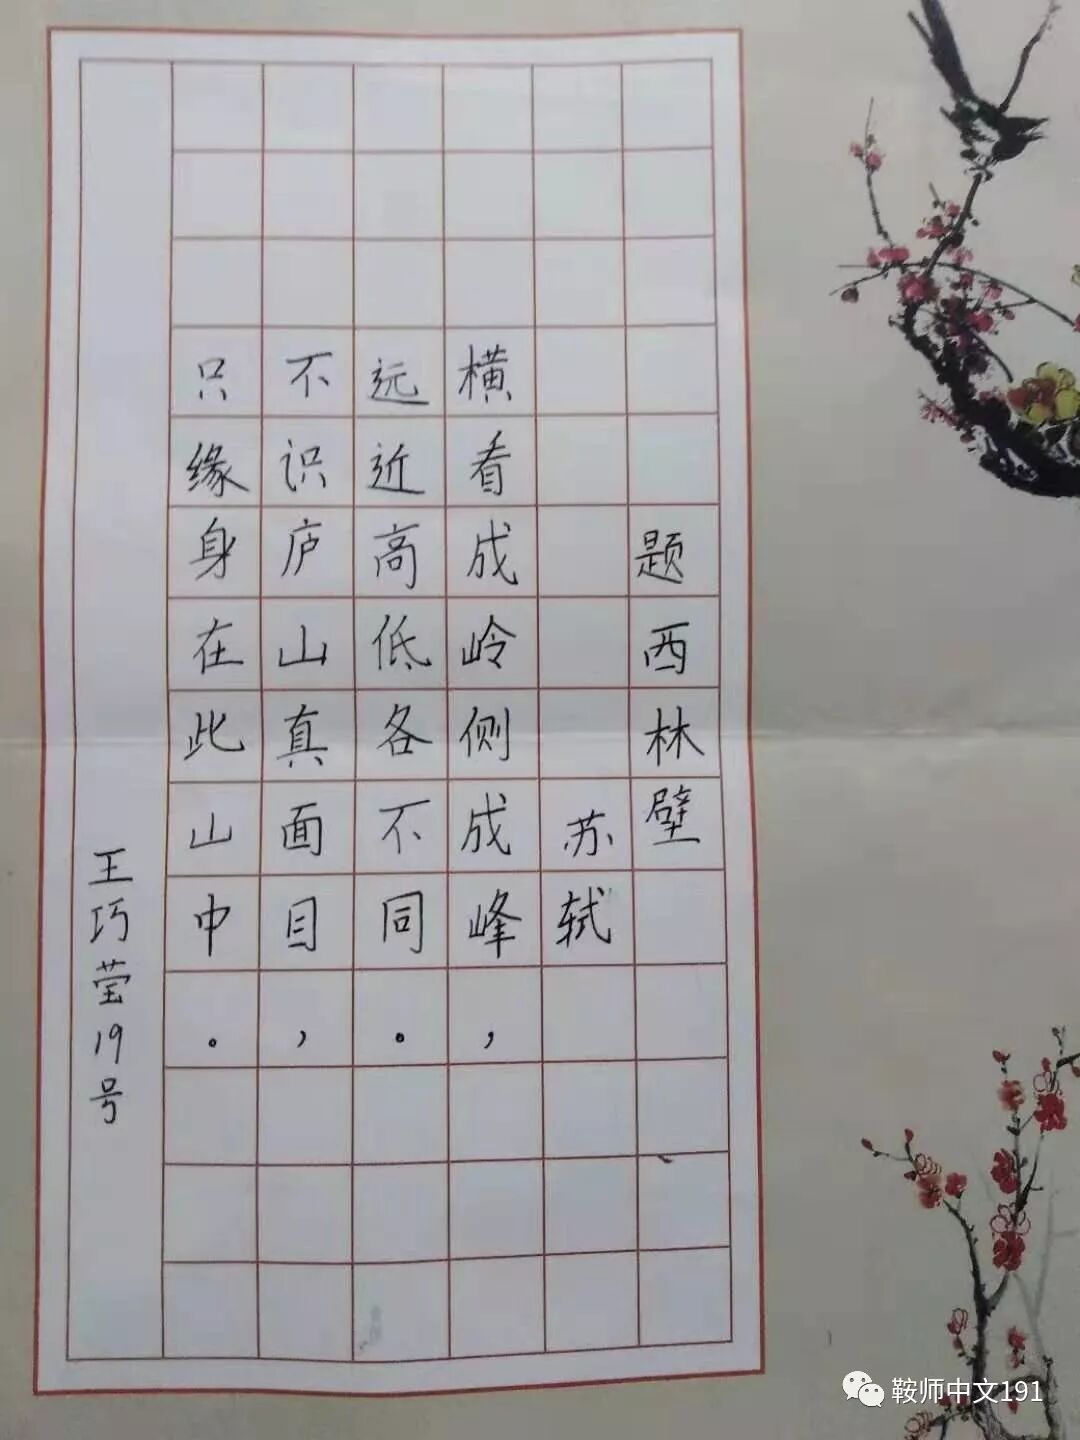 题西林壁
苏轼
横看成岭侧成峰，
远近高低各不同。
不识庐山真面目，
只缘身在此山中。
王巧莹19号
鞍师中文191